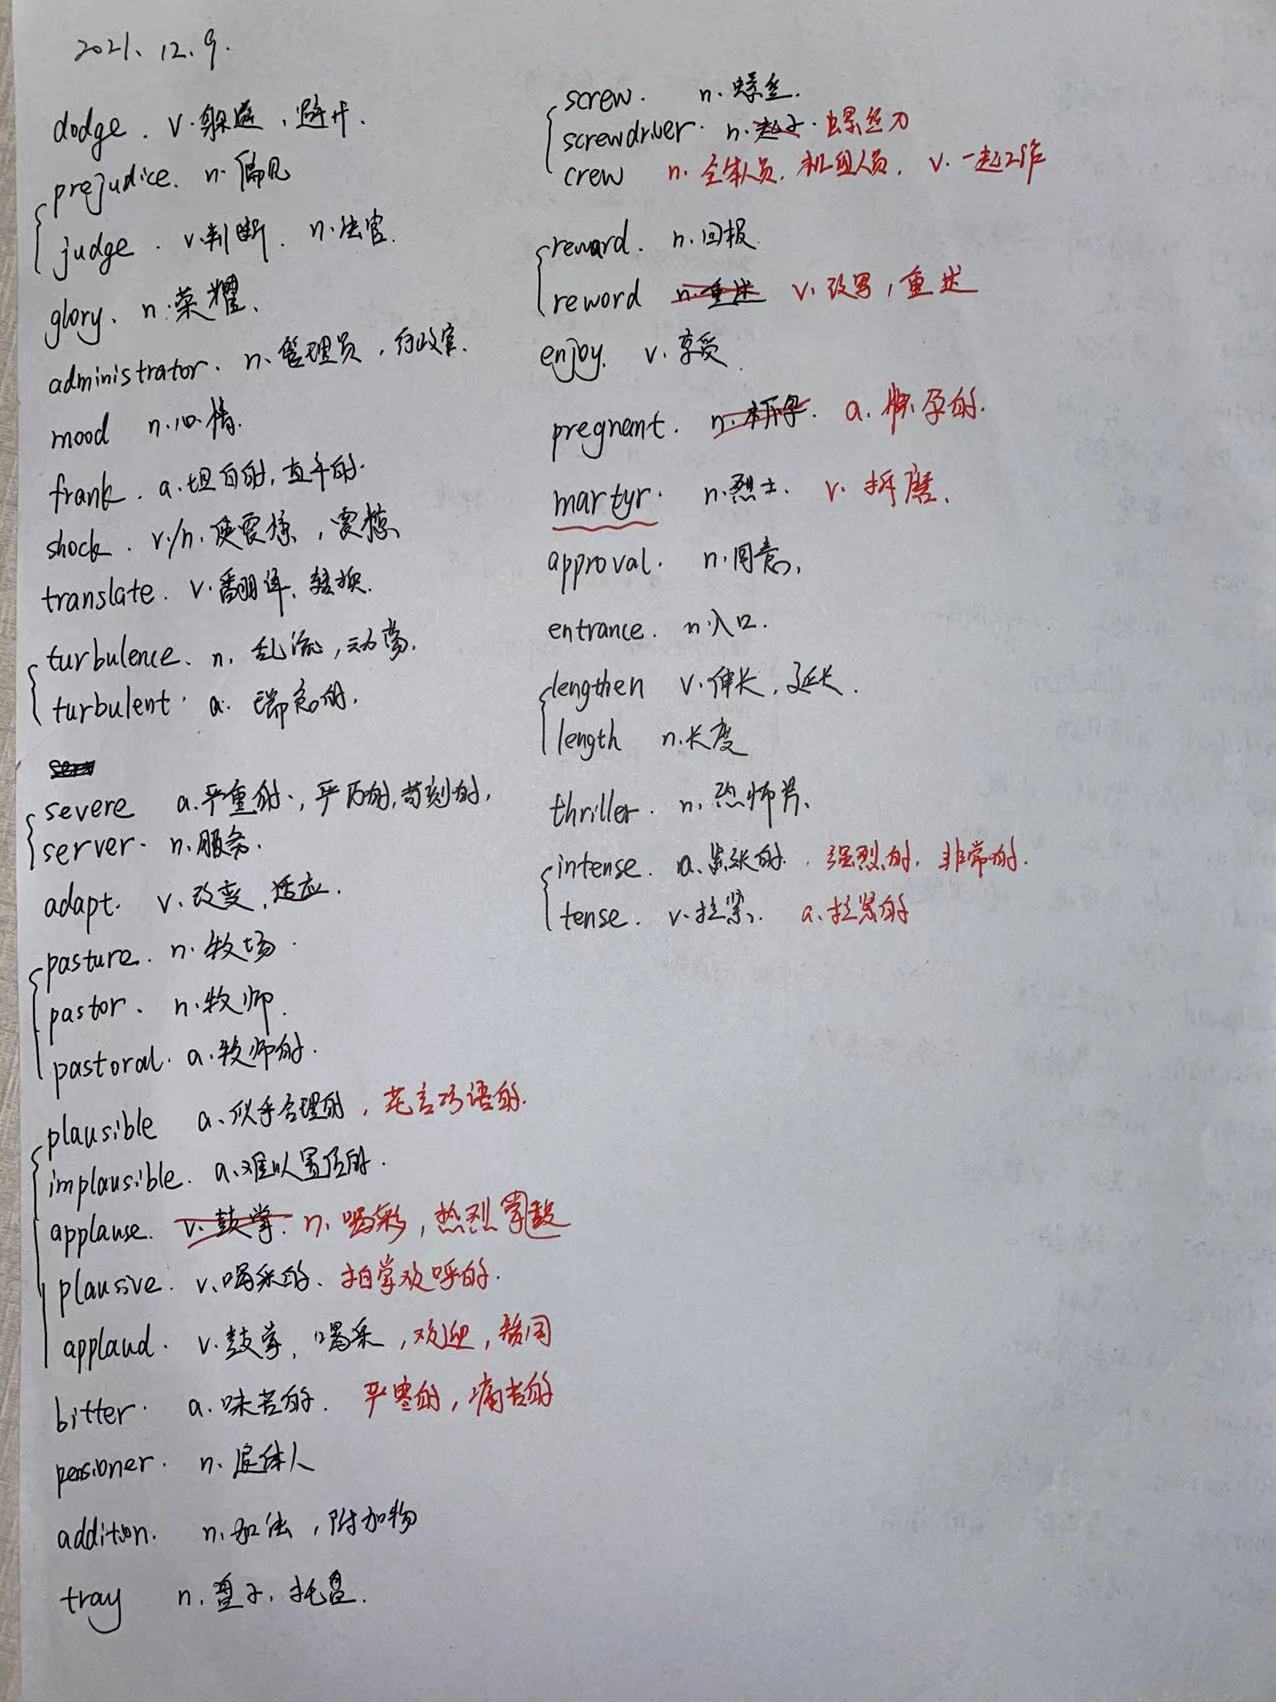 2021.12.9.
dodge. v.躲避,避开.
prejudice. n.偏见
judge. v.判断. n.法官.
glory. n.荣耀.
administrator. n.管理员,行政官.
mood n.心情.
frank. a.坦白的,直率的.
shock. v./n.使震惊,震惊
translate. v.翻译、转换.
turbulence. n.乱流,动荡.
turbulent. a.湍急的.
severe a.严重的.,严厉的,苛刻的,
server. n.服务.
adapt. v.改变,适应.
pasture. n.牧场.
pastor. n.牧师.
pastoral. a.牧师的.
plausible a.似乎合理的,花言巧语的.
implausible. a.难以置信的.
applause. v.鼓掌. n.喝彩,热烈鼓掌
plausive. v.喝采的、拍掌欢呼的.
applaud. v.鼓掌,喝采,欢迎,赞同
bitter. a.味苦的. 严寒的,痛苦的
pensioner. n.退休人
addition. n.加法,附加物
tray n.盘子,托盘.
screw. n.螺丝.
screwdriver. n.起子.螺丝刀
crew n.全体人员,机组人员, v.一起工作
reward. n.回报
reword n.重述 v.改写,重述
enjoy. v.享受.
pregnant. n. a.怀孕的.
martyr. n.烈士. v.折磨.
approval. n.同意,
entrance. n.入口.
lengthen v.伸长,延长.
length n.长度
thriller. n.恐怖片.
intense. a.紧张的.,强烈的,非常的.
tense. v.拉紧. a.拉紧的